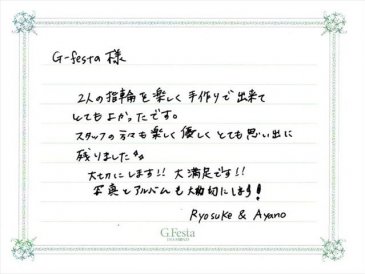 G-festa 様
2人の指輪を楽しく手作りで出来て
とてもよかったです。
スタッフの方々も楽しく優しくとても思い出に
残りました
大切にします!! 大満足です!!
写真とアルバムも大切にします!
Ryosuke & Ayano
G.Festa